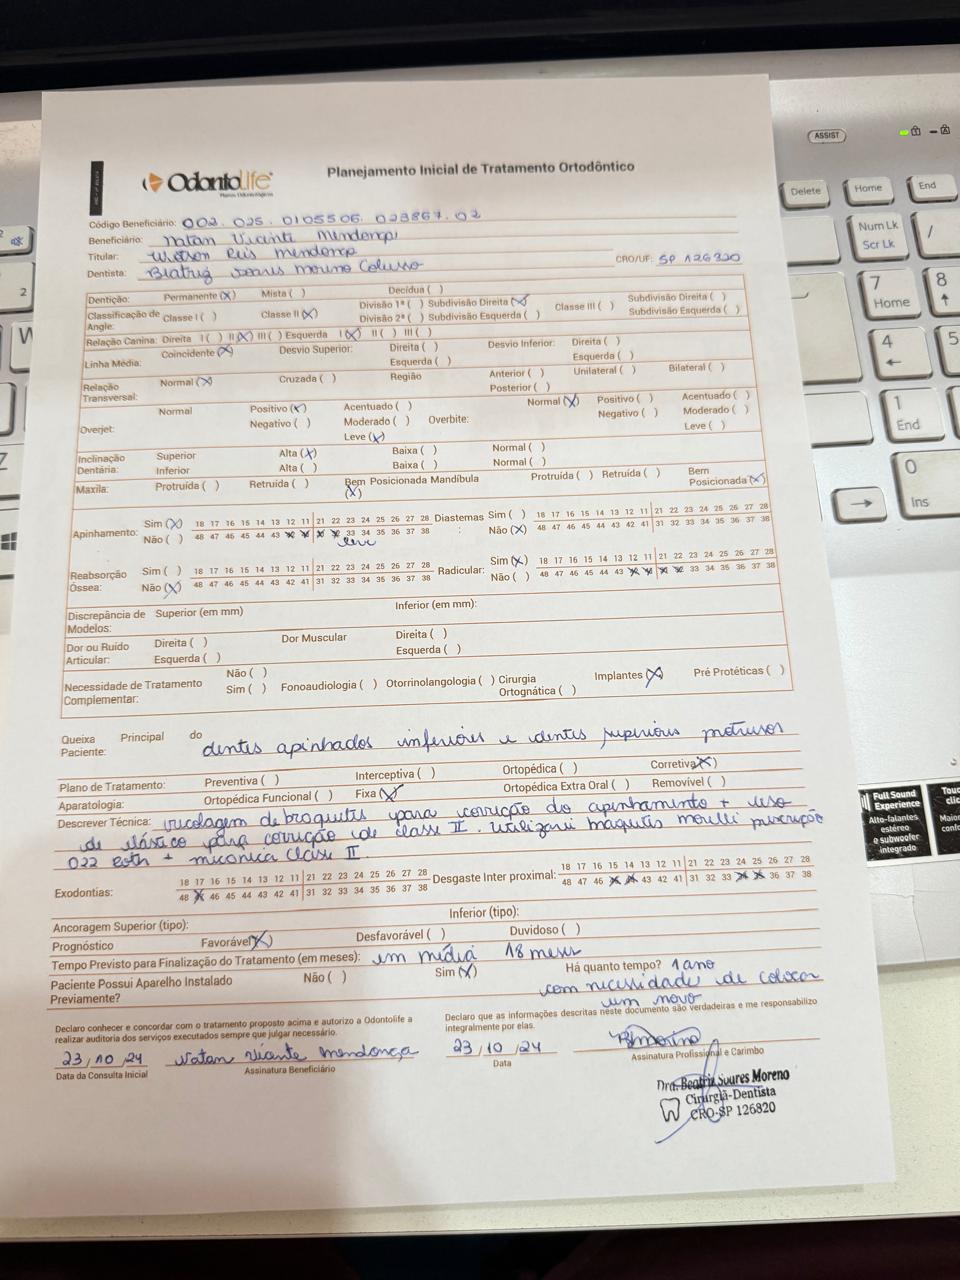 OdontoLife
Planos Odontológicos
Planejamento Inicial de Tratamento Ortodôntico
Código Beneficiário: 002.025.0105506.023867.02
Beneficiário: Natan Vicente Mendonça
Titular: Wetson Reis Mendonça
Dentista: Beatriz Soares Moreno Colusso CRO/UF: SP 126820
Dentição: Permanente (X) Mista ( ) Decídua ( )
Classificação de Angle: Classe I ( ) Classe II (X) Divisão 1ª ( ) Subdivisão Direita (X) Classe III ( ) Subdivisão Direita ( )
Divisão 2ª ( ) Subdivisão Esquerda ( ) Subdivisão Esquerda ( )
Relação Canina: Direita I ( ) II (X) III ( ) Esquerda I (X) II ( ) III ( )
Linha Média: Coincidente (X) Desvio Superior: Direita ( ) Desvio Inferior: Direita ( )
Esquerda ( ) Esquerda ( )
Relação Transversal: Normal (X) Cruzada ( ) Região Anterior ( ) Unilateral ( ) Bilateral ( )
Posterior ( )
Overjet: Normal Positivo (X) Acentuado ( ) Overbite: Normal (X) Positivo ( ) Acentuado ( )
Negativo ( ) Moderado ( ) Negativo ( ) Moderado ( )
Leve (X) Leve ( )
Inclinação Dentária: Superior Alta (X) Baixa ( ) Normal ( )
Inferior Alta ( ) Baixa ( ) Normal ( )
Maxila: Protruída ( ) Retruída ( ) Bem Posicionada (X) Mandíbula Protruída ( ) Retruída ( ) Bem Posicionada (X)
Apinhamento: Sim (X) 18 17 16 15 14 13 12 11 21 22 23 24 25 26 27 28 Diastemas: Sim ( ) 18 17 16 15 14 13 12 11 21 22 23 24 25 26 27 28
Não ( ) 48 47 46 45 44 43 X X X X 33 34 35 36 37 38 Não (X) 48 47 46 45 44 43 42 41 31 32 33 34 35 36 37 38
leve
Reabsorção Óssea: Sim ( ) 18 17 16 15 14 13 12 11 21 22 23 24 25 26 27 28 Radicular: Sim (X) 18 17 16 15 14 13 12 11 21 22 23 24 25 26 27 28
Não (X) 48 47 46 45 44 43 42 41 31 32 33 34 35 36 37 38 Não ( ) 48 47 46 45 44 43 X X X X 33 34 35 36 37 38
Discrepância de Modelos: Superior (em mm) Inferior (em mm):
Dor ou Ruído Articular: Direita ( ) Dor Muscular Direita ( )
Esquerda ( ) Esquerda ( )
Necessidade de Tratamento Complementar: Não ( )
Sim ( ) Fonoaudiologia ( ) Otorrinolangologia ( ) Cirurgia Ortognática ( ) Implantes (X) Pré Protéticas ( )
Queixa Principal do Paciente: dentes apinhados inferiores e dentes superiores protrusos
Plano de Tratamento: Preventiva ( ) Interceptiva ( ) Ortopédica ( ) Corretiva (X)
Aparatologia: Ortopédica Funcional ( ) Fixa (X) Ortopédica Extra Oral ( ) Removível ( )
Descrever Técnica: colagem de braquetes para correção do apinhamento + uso
de elástico para correção de classe II. Utilizarei maquetes morelli prescrição
022 roth + mecânica Classe II.
Exodontias: 18 17 16 15 14 13 12 11 21 22 23 24 25 26 27 28 Desgaste Inter proximal: 18 17 16 15 14 13 12 11 21 22 23 24 25 26 27 28
48 X 46 45 44 43 42 41 31 32 33 34 35 36 37 38 48 47 46 X X 43 42 41 31 32 33 X X 36 37 38
Ancoragem Superior (tipo): Inferior (tipo):
Prognóstico Favorável (X) Desfavorável ( ) Duvidoso ( )
Tempo Previsto para Finalização do Tratamento (em meses): em média 18 meses
Paciente Possui Aparelho Instalado Previamente? Não ( ) Sim (X) Há quanto tempo? 1 ano
com necessidade de colocar
um novo
Declaro conhecer e concordar com o tratamento proposto acima e autorizo a Odontolife a
realizar auditoria dos serviços executados sempre que julgar necessário.
Declaro que as informações descritas neste documento são verdadeiras e me responsabilizo
integralmente por elas.
23/10/24 Natan Vicente Mendonça 23/10/24
Data da Consulta Inicial Assinatura Beneficiário Data Assinatura Profissional e Carimbo
Dra. Beatriz Soares Moreno
Cirurgiã-Dentista
CRO-SP 126820
ASSIST
Delete Home End
Num Lk
Scr Lk
/
7
Home
8
4
5
1
End
0
Ins
2
W
Z
Full Sound
Experience
Alto-falantes
estéreo
e subwoofer
integrado